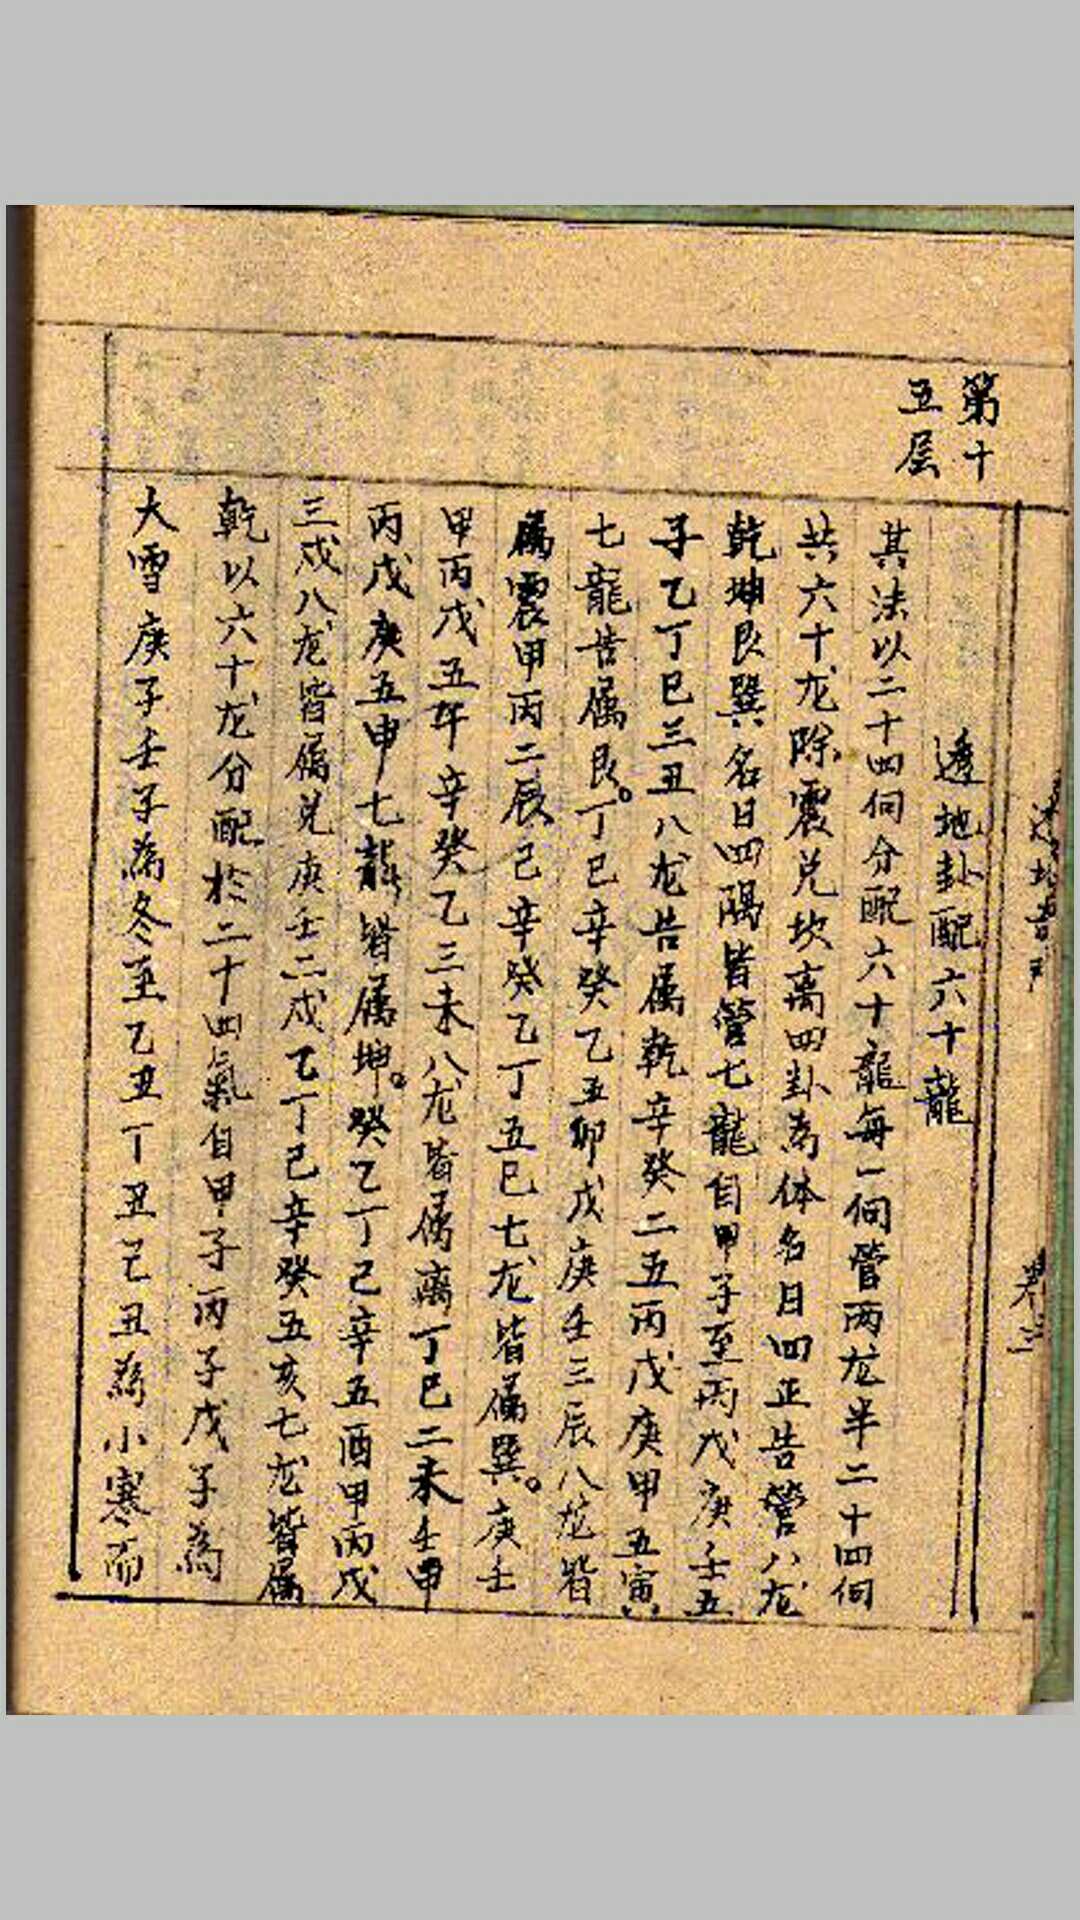 第十
五层
透地卦配六十龍
其法以二十四向分配六十龍每一向管两龙半二十四向
共六十龙除震兑坎离四卦為体名曰四正告管八龙
乾坤艮巽名曰四隅皆管七龍自甲子至丙戊庚壬五
子乙丁巳三丑八龙告属乾辛癸二五丙戊庚甲五寅
七龍告属艮。丁巳辛癸乙五卯戊庚壬三辰八龙皆
属震甲丙二辰己辛癸乙丁五巳七龙皆属巽。庚壬
甲丙戊五午辛癸乙三未八龙皆属离丁巳二未壬甲
丙戊庚五申七龍皆属坤。癸乙丁己辛五酉甲丙戊
三戍八龙皆属兑庚壬二戍乙丁己辛癸五亥七龙皆属
乾以六十龙分配於二十四氣自甲子丙子戊子為
大雪庚子壬子為冬至乙丑丁丑己丑為小寒而
卷三